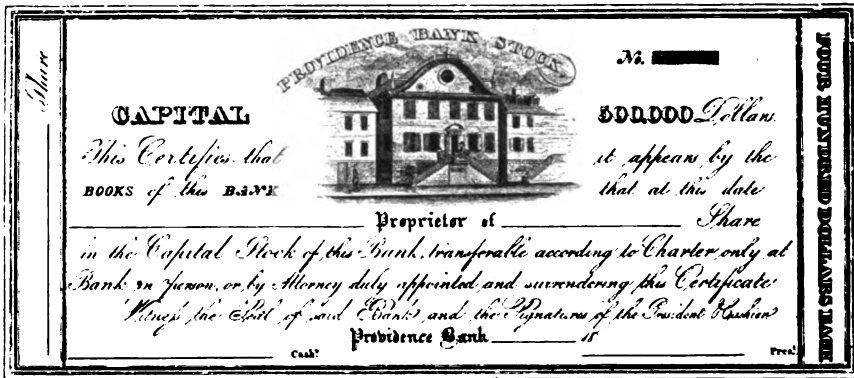 Share
PROVIDENCE BANK STOCK
No.
CAPITAL 500,000 Dollars
This Certifies that it appears by the
BOOKS of this BANK that at this date
Proprietor of Share
in the Capital Stock of this Bank, transferable according to Charter only at
Bank in person, or by Attorney duly appointed and surrendering this Certificate
Witness the Seal of said Bank and the Signatures of the President & Cashier
Providence Bank 18
Cash.r Pres.t
FOUR HUNDRED DOLLARS EACH